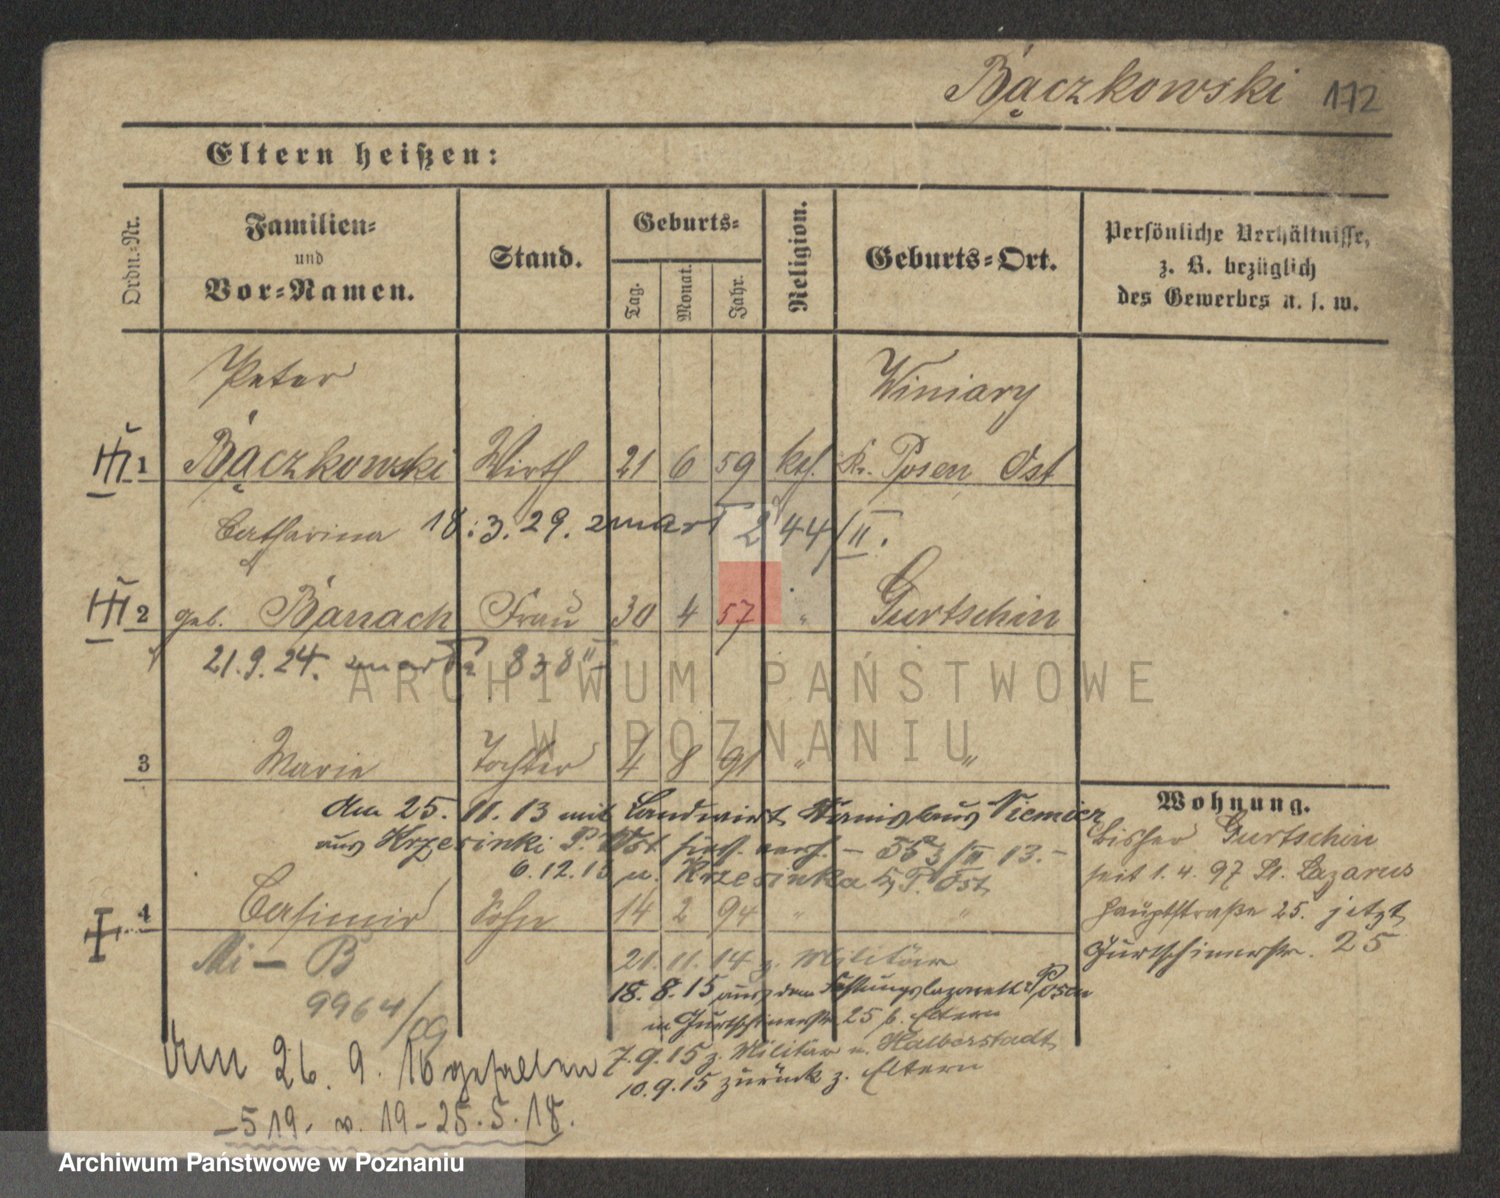 Bączkowski 172
Eltern heißen:
Ordn.-Nr.
Familien-
und
Vor-Namen.
Stand.
Geburts-
Tag.
Monat.
Jahr.
Religion.
Geburts-Ort.
Persönliche Verhältnisse,
z. B. bezüglich
des Gewerbes u. s. w.
Peter Winiary
1 Bączkowski Wirth 21 6 59 kth. Kr. Posen Ost
Catharina 18.3.29. zmarł 244/II.
2 geb. Banach Frau 30 4 57 " Gurtschin
21.9.24. zmarła 838 II
3 Marie Tochter 4 8 91 " "
den 25. 11. 13 mit Landwirt Stanislaus Niemier
aus Krzesinki P. Ost
6.12.13 n. Krzesinki P. Ost
4 Casimir Sohn 14 2 94 " "
Mi - B
9964/09
21. 11. 14 z. Militär
18. 8. 15 aus dem Festungslazarett Posen
in Gurtschinerstr. 25 b. Eltern
7.9.15 z. Militär n. Halberstadt
10.9.15 zurück z. Eltern
Am 26. 9. 16 gefallen
-519- v. 19-25.5.18.
Wohnung.
bisher Gurtschin
seit 1. 4. 97 St. Lazarus
Hauptstraße 25. jetzt
Gurtschinerstr. 25
ARCHIWUM PAŃSTWOWE
W POZNANIU
Archiwum Państwowe w Poznaniu